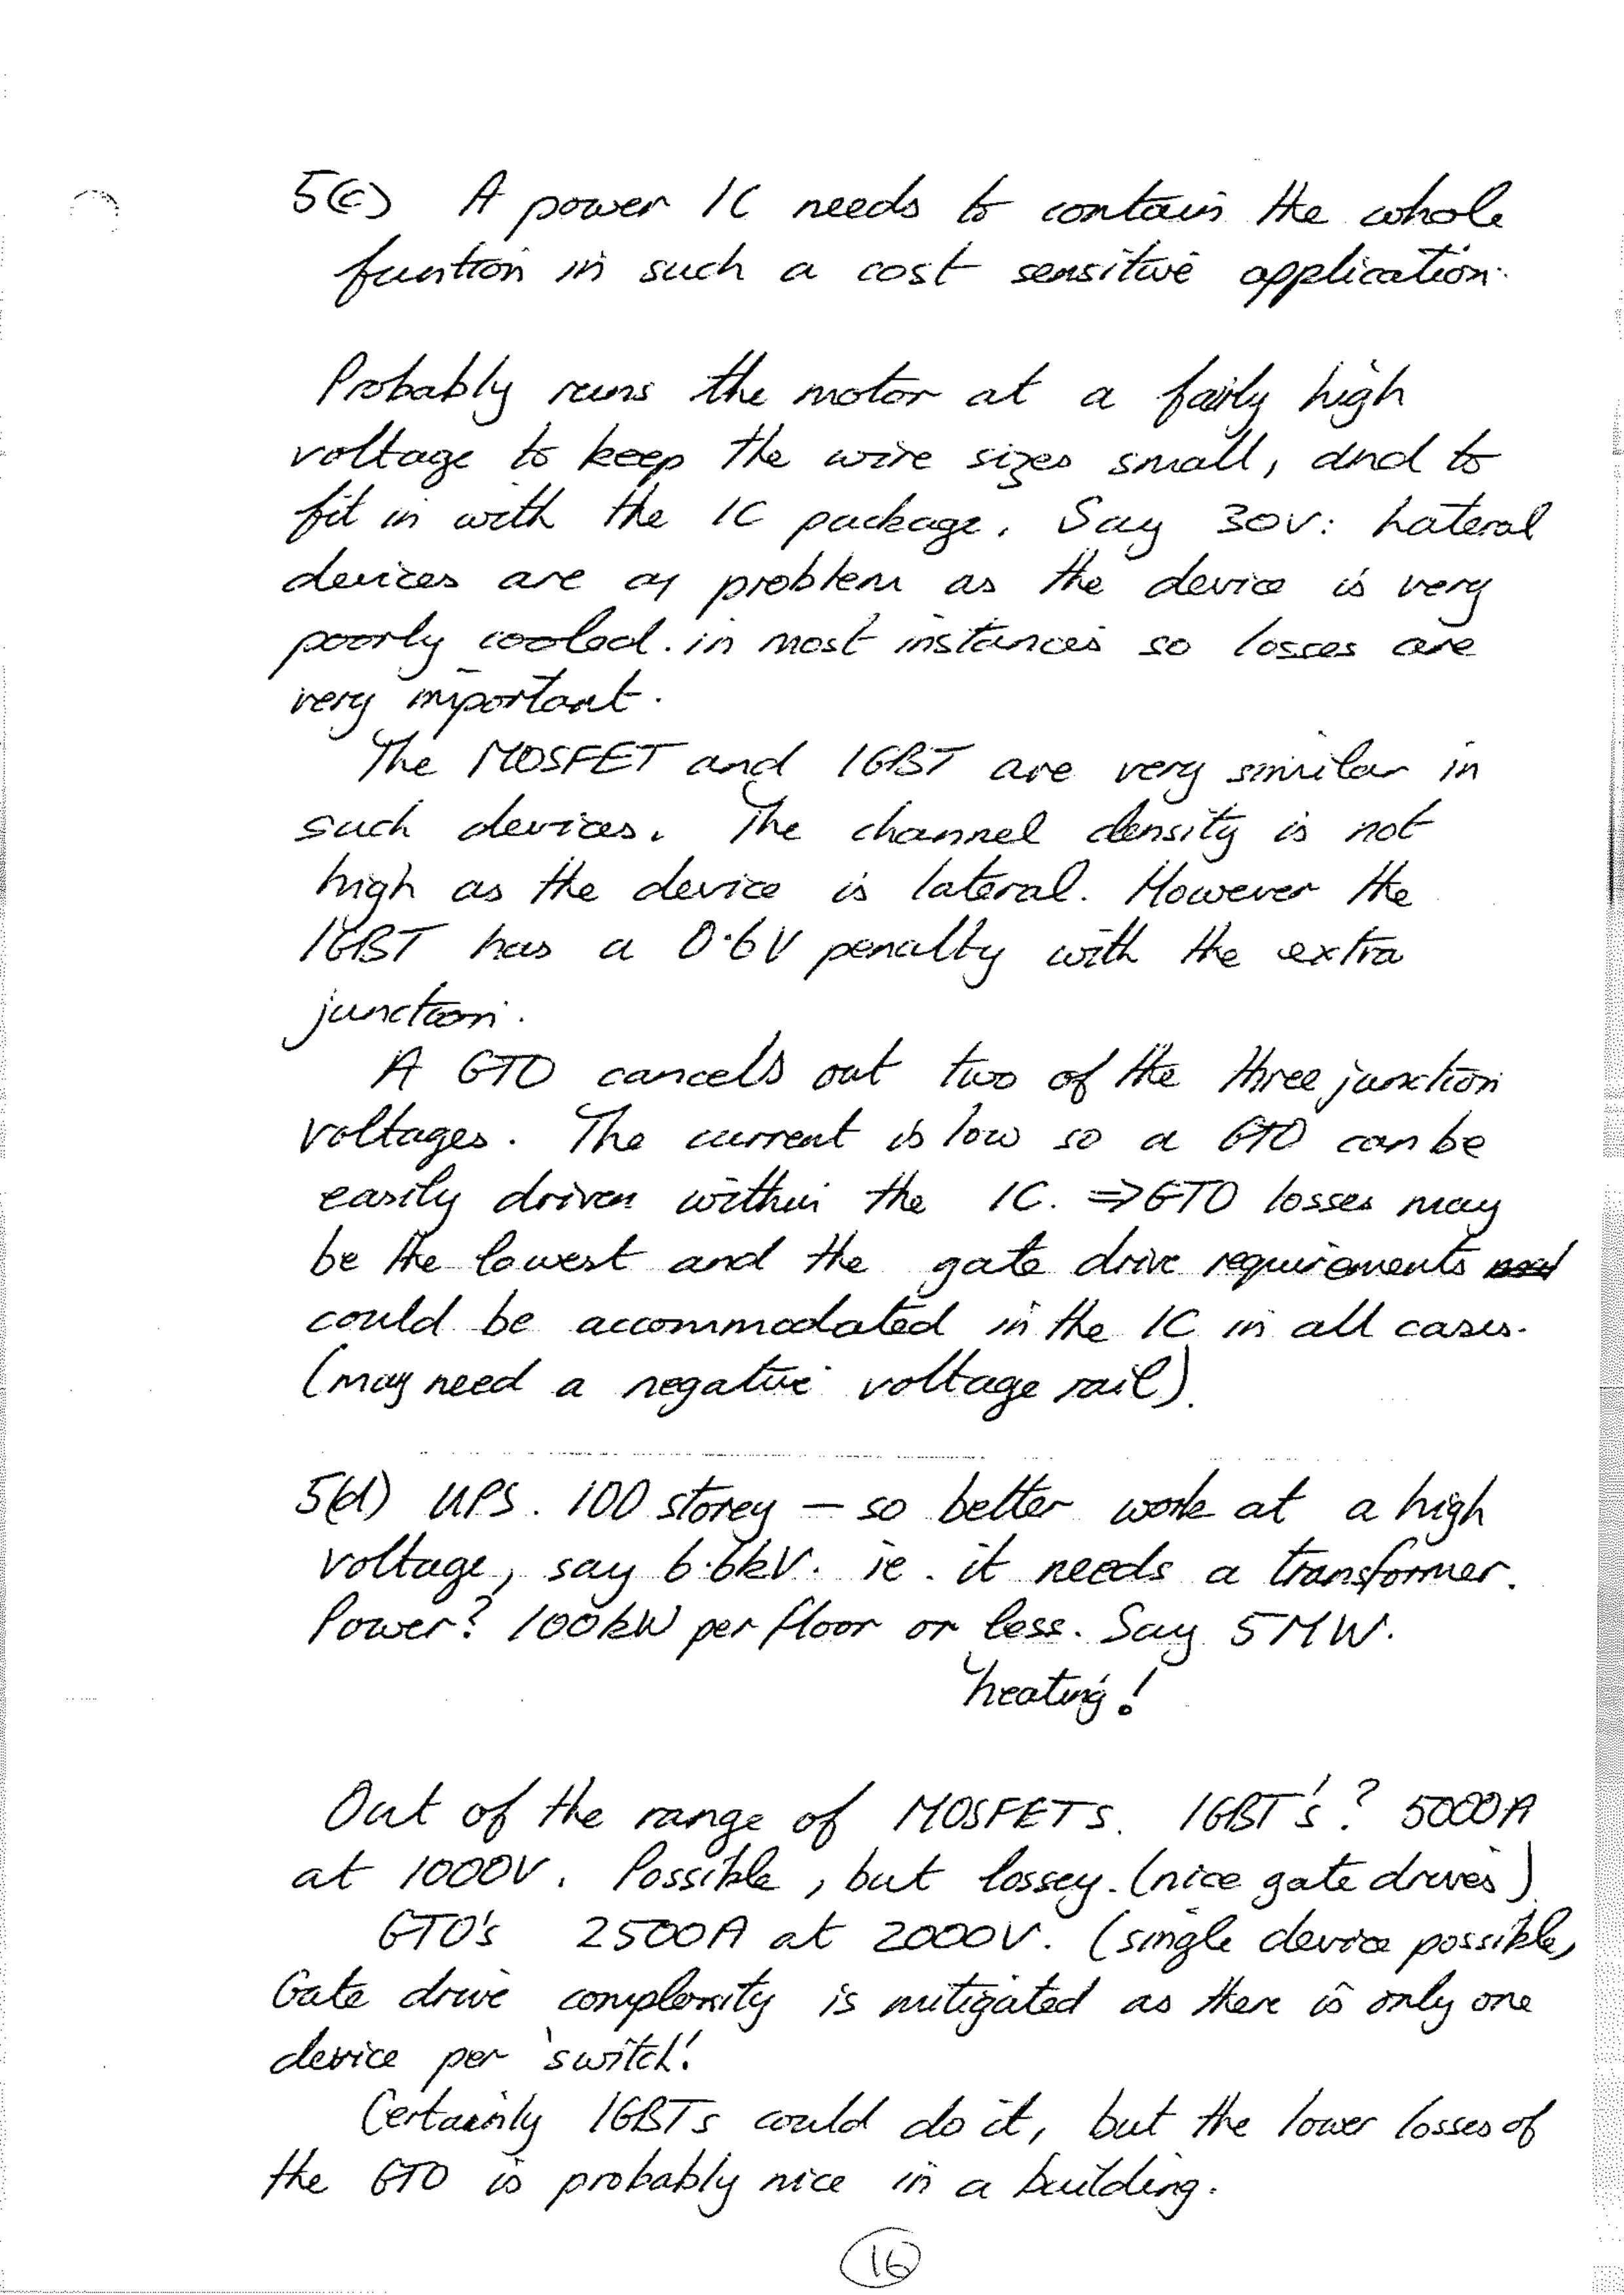 5(c) A power IC needs to contain the whole
funtion in such a cost sensitive application.
Probably runs the motor at a fairly high
voltage to keep the wire sizes small, and to
fit in with the IC package. Say 30V: Lateral
devices are a problem as the device is very
poorly cooled. in most instances so losses are
very important.
The MOSFET and IGBT are very similar in
such devices. The channel density is not
high as the device is lateral. However the
IGBT has a 0.6V penalty with the extra
junction.
A GTO cancels out two of the three junction
voltages. The current is low so a GTO can be
easily driven within the IC. ⇒ GTO losses may
be the lowest and the gate drive requirements
could be accommodated in the IC in all cases.
(may need a negative voltage rail).
5(d) UPS. 100 storey – so better work at a high
voltage, say 6.6kV. ie. it needs a transformer.
Power? 100kW per floor or less. Say 5MW.
heating!
Out of the range of MOSFETS. IGBT's? 5000A
at 1000V. Possible, but lossey. (nice gate drives)
GTO's 2500A at 2000V. (single device possible,
Gate drive complexity is mitigated as there is only one
device per 'switch'.
Certainly IGBTs could do it, but the lower losses of
the GTO is probably nice in a building.
16